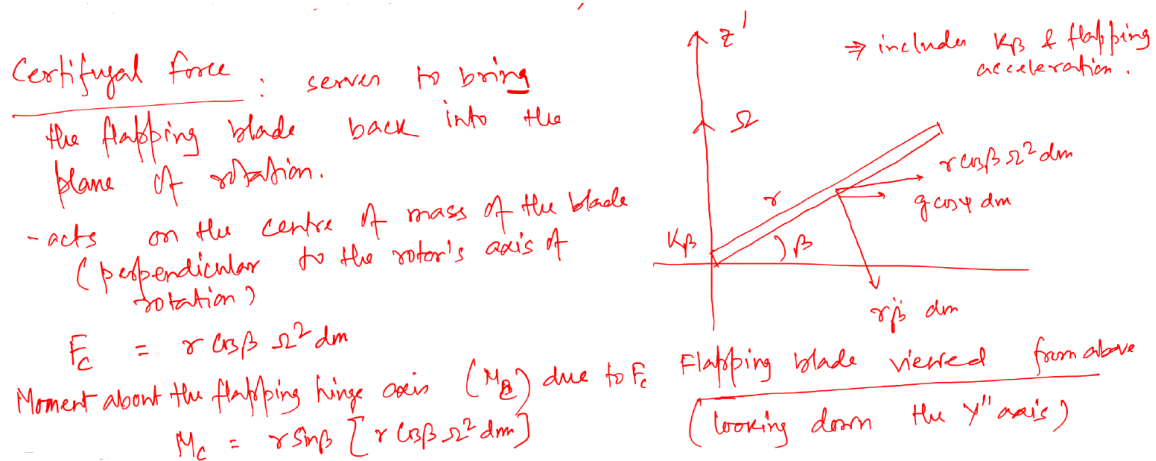 Certifugal force : serves to bring
the flapping blade back into the
plane of rotation.
- acts on the centre of mass of the blade
(perpendicular to the rotor's axis of
rotation)
F_c = r cosβ Ω² dm
Moment about the flapping hinge axis (M_C) due to F_c
M_c = r sinβ [r cosβ Ω² dm]
z'
⇒ includes Kβ & flapping
acceleration.
Ω
r cosβ Ω² dm
r
g cosψ dm
Kβ
β
rβ̈ dm
Flapping blade viewed from above
(looking down the y" axis)